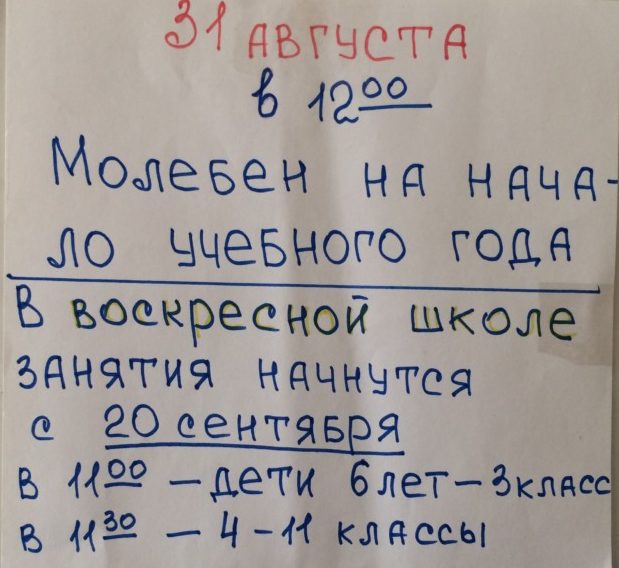 31 АВГУСТА
в 12⁰⁰
Молебен на нача-
ло учебного года
В воскресной школе
занятия начнутся
с 20 сентября
в 11⁰⁰ – дети 6 лет – 3 класс
в 11³⁰ – 4 – 11 классы